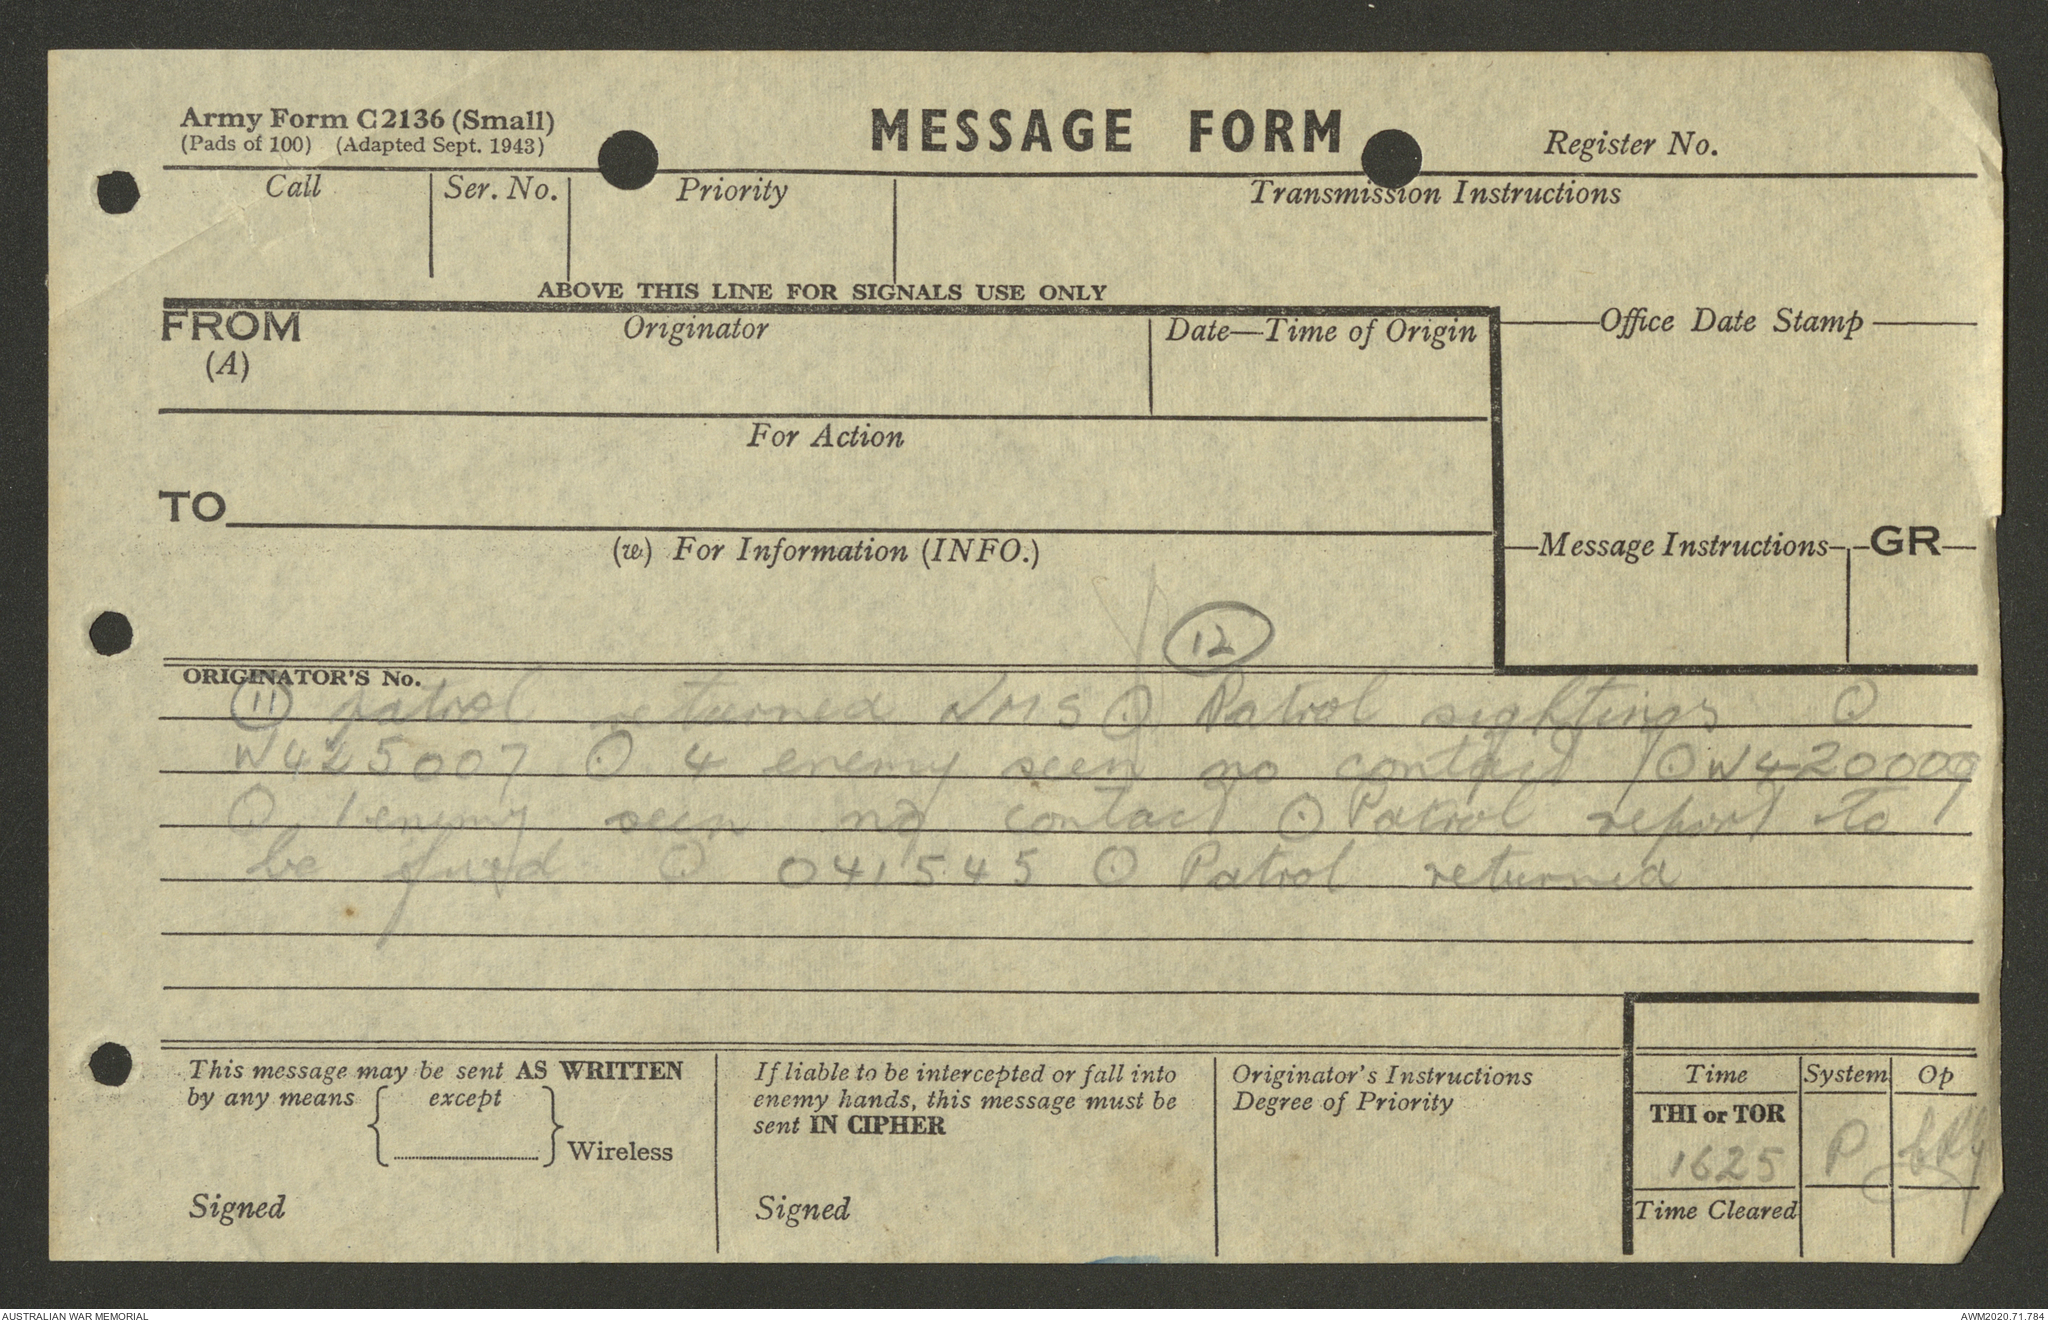 Army Form C2136 (Small)
(Pads of 100) (Adapted Sept. 1943)
MESSAGE FORM
Register No.
Call
Ser. No.
Priority
Transmission Instructions
ABOVE THIS LINE FOR SIGNALS USE ONLY
FROM
(A)
Originator
Date—Time of Origin
Office Date Stamp
For Action
TO
(w) For Information (INFO.)
Message Instructions
GR
12
ORIGINATOR'S No.
11 patrol returned Patrol sightings
W425007 4 enemy seen no contact W420009
1 enemy seen no contact Patrol report to
be 041545 Patrol returned
This message may be sent AS WRITTEN
by any means except
Wireless
Signed
If liable to be intercepted or fall into
enemy hands, this message must be
sent IN CIPHER
Signed
Originator's Instructions
Degree of Priority
Time System Op
THI or TOR
1625 P
Time Cleared
AUSTRALIAN WAR MEMORIAL
AWM2020.71.784